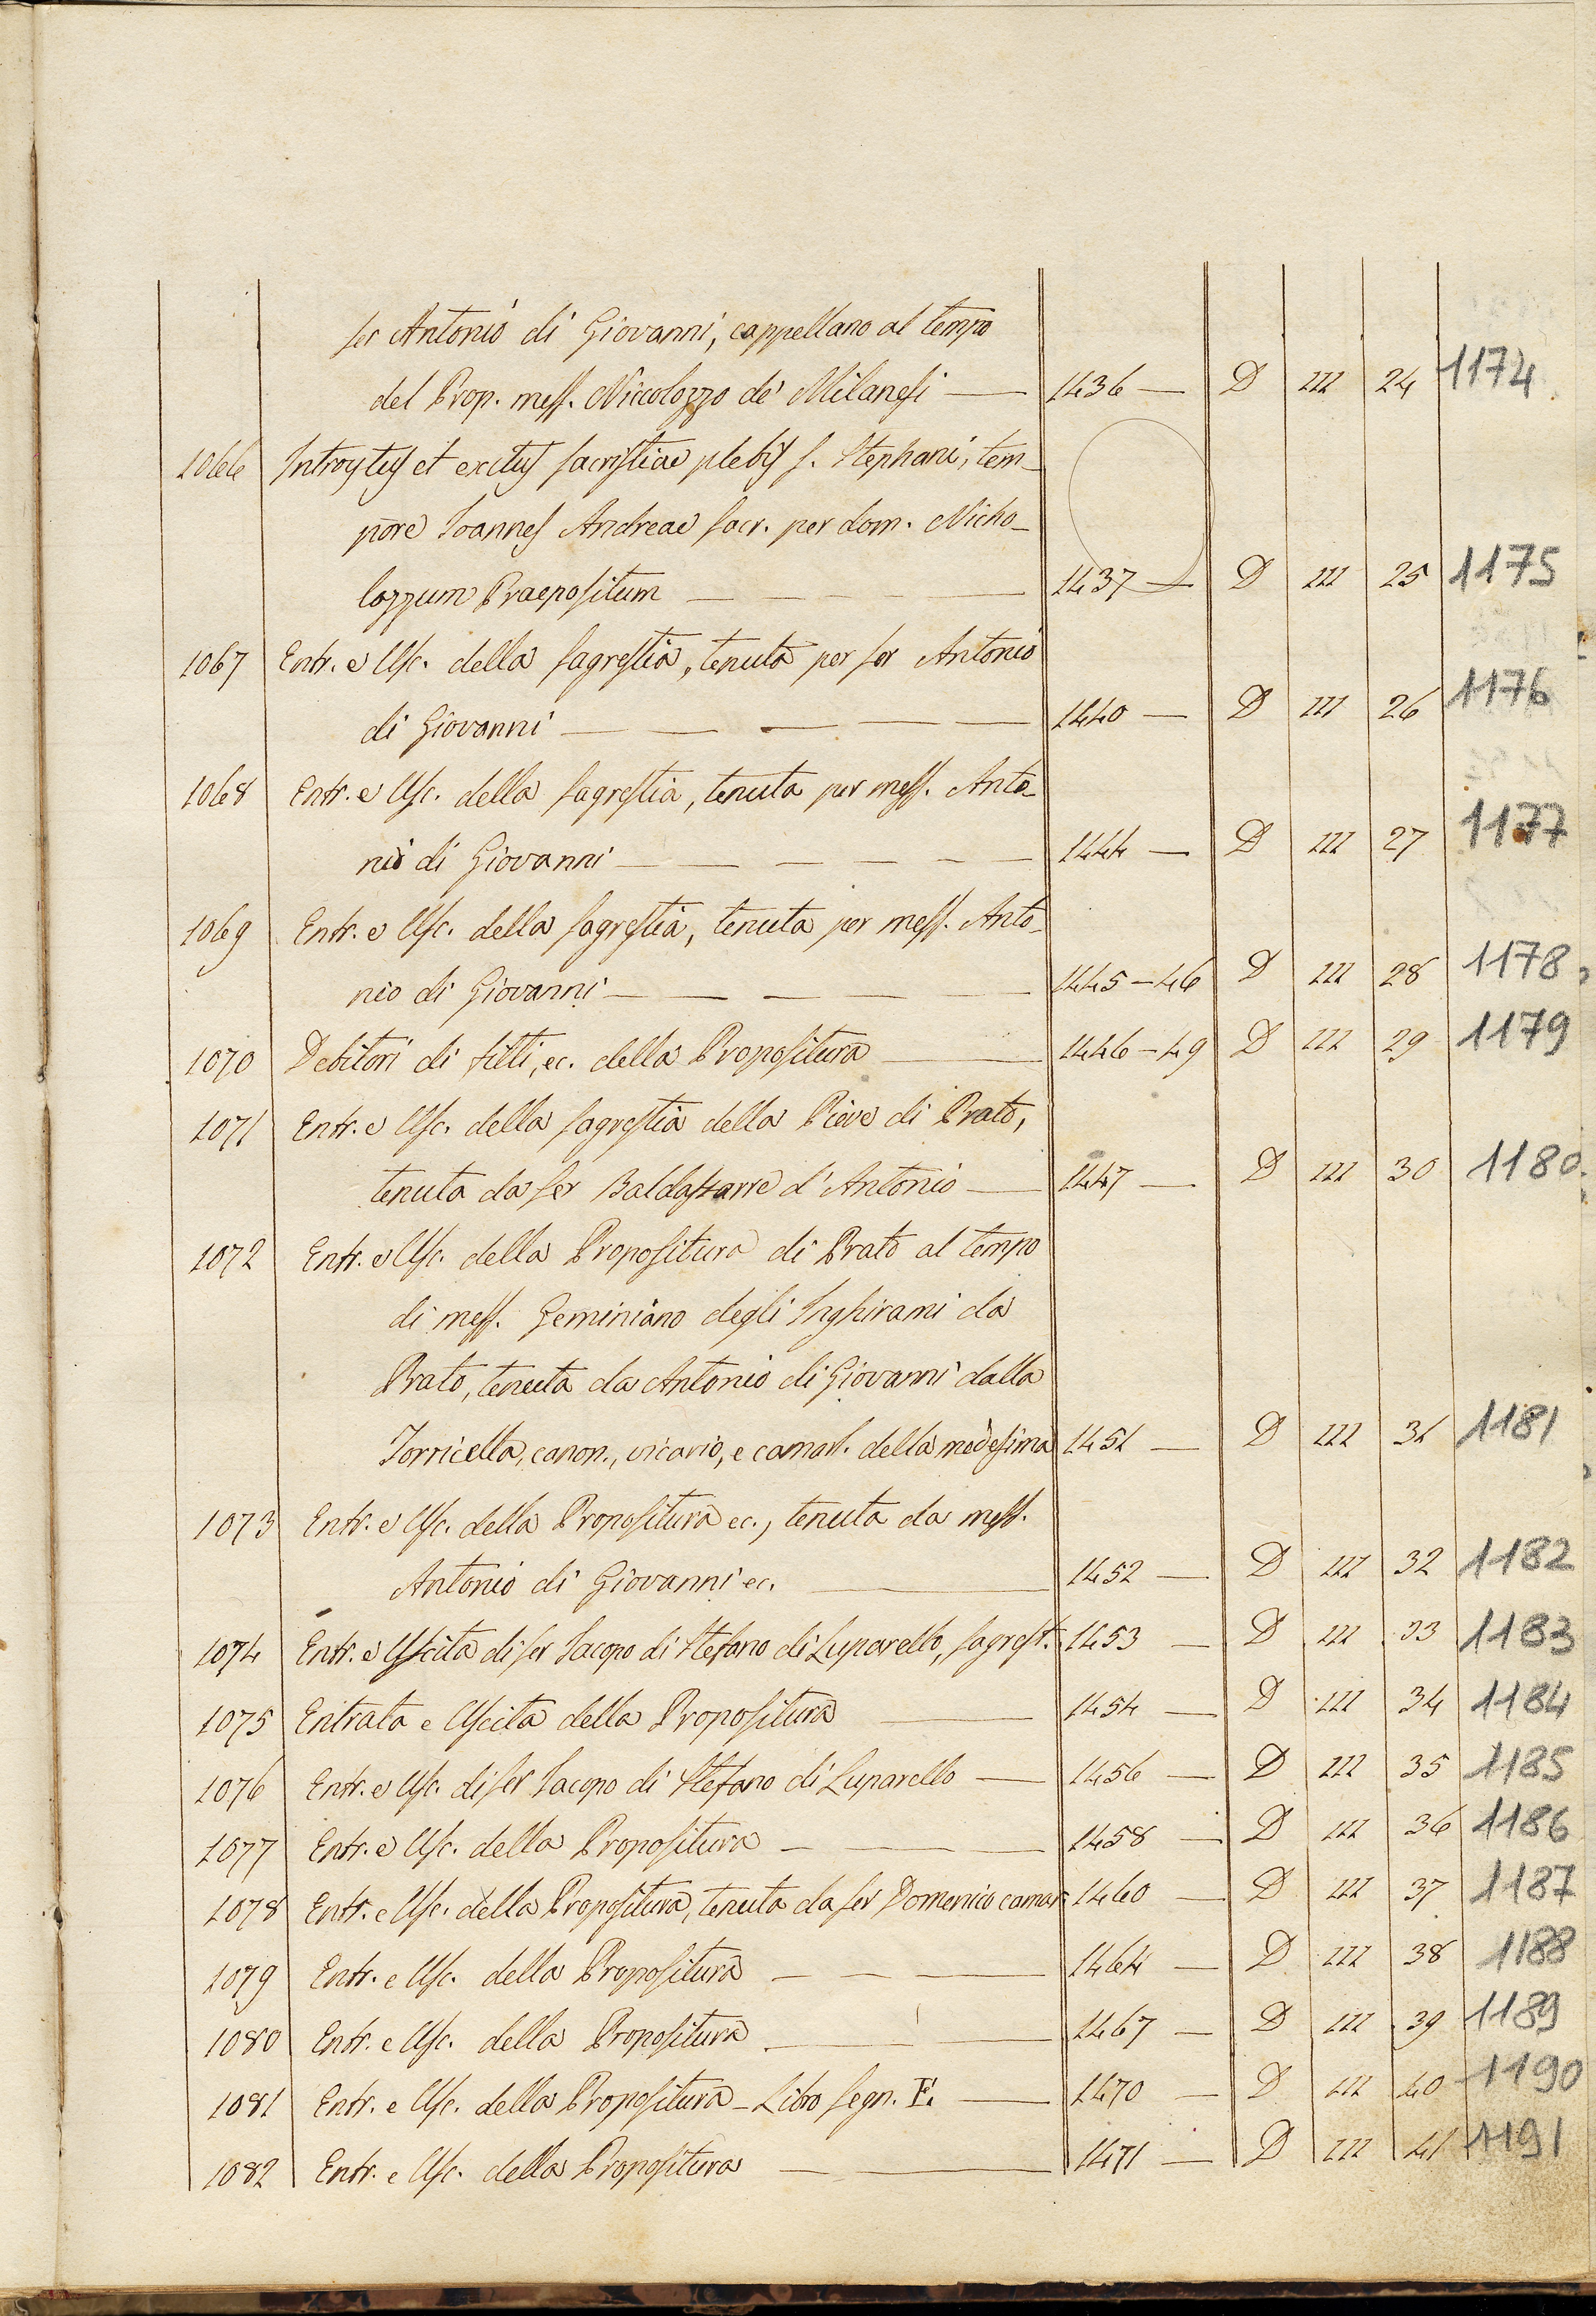 ser Antonio di Giovanni, cappellano al tempo
del Prop. mess. Niccolozzo de' Milanesi — 1436 — D III 24 1174
1066 Introytus et exitus sacristiae plebis s. Stephani, tem-
pore Ioannes Andreae sacr. per dom. Nicho-
lozzum Praepositum — 1437 — D III 25 1175
1067 Entr. e Usc. della sagrestia, tenuta per ser Antonio
di Giovanni — 1440 — D III 26 1176
1068 Entr. e Usc. della sagrestia, tenuta per mess. Anto-
nio di Giovanni — 1444 — D III 27 1177
1069 Entr. e Usc. della sagrestia, tenuta per mess. Anto-
nio di Giovanni — 1445-46 D III 28 1178
1070 Debitori di fitti, ec. della Propositura — 1446-49 D III 29 1179
1071 Entr. e Usc. della sagrestia della Pieve di Prato,
tenuta da ser Baldassarre d'Antonio — 1447 — D III 30 1180
1072 Entr. e Usc. della Propositura di Prato al tempo
di mess. Geminiano degli Inghirami da
Prato, tenuta da Antonio di Giovanni dalla
Torricella, canon., vicario, e camarl. della medesima 1451 — D III 31 1181
1073 Entr. e Usc. della Propositura ec., tenuta da mess.
Antonio di Giovanni ec. — 1452 — D III 32 1182
1074 Entr. e Uscita di ser Iacopo di Stefano di Luparello, sagrest. 1453 — D III 33 1183
1075 Entrata e Uscita della Propositura — 1454 — D III 34 1184
1076 Entr. e Usc. di ser Iacopo di Stefano di Luparello — 1456 — D III 35 1185
1077 Entr. e Usc. della Propositura — 1458 — D III 36 1186
1078 Entr. e Usc. della Propositura, tenuta da ser Domenico camar. 1460 — D III 37 1187
1079 Entr. e Usc. della Propositura — 1464 — D III 38 1188
1080 Entr. e Usc. della Propositura — 1467 — D III 39 1189
1081 Entr. e Usc. della Propositura - Libro segn. E. — 1470 — D III 40 1190
1082 Entr. e Usc. della Propositura — 1471 — D III 41 1191